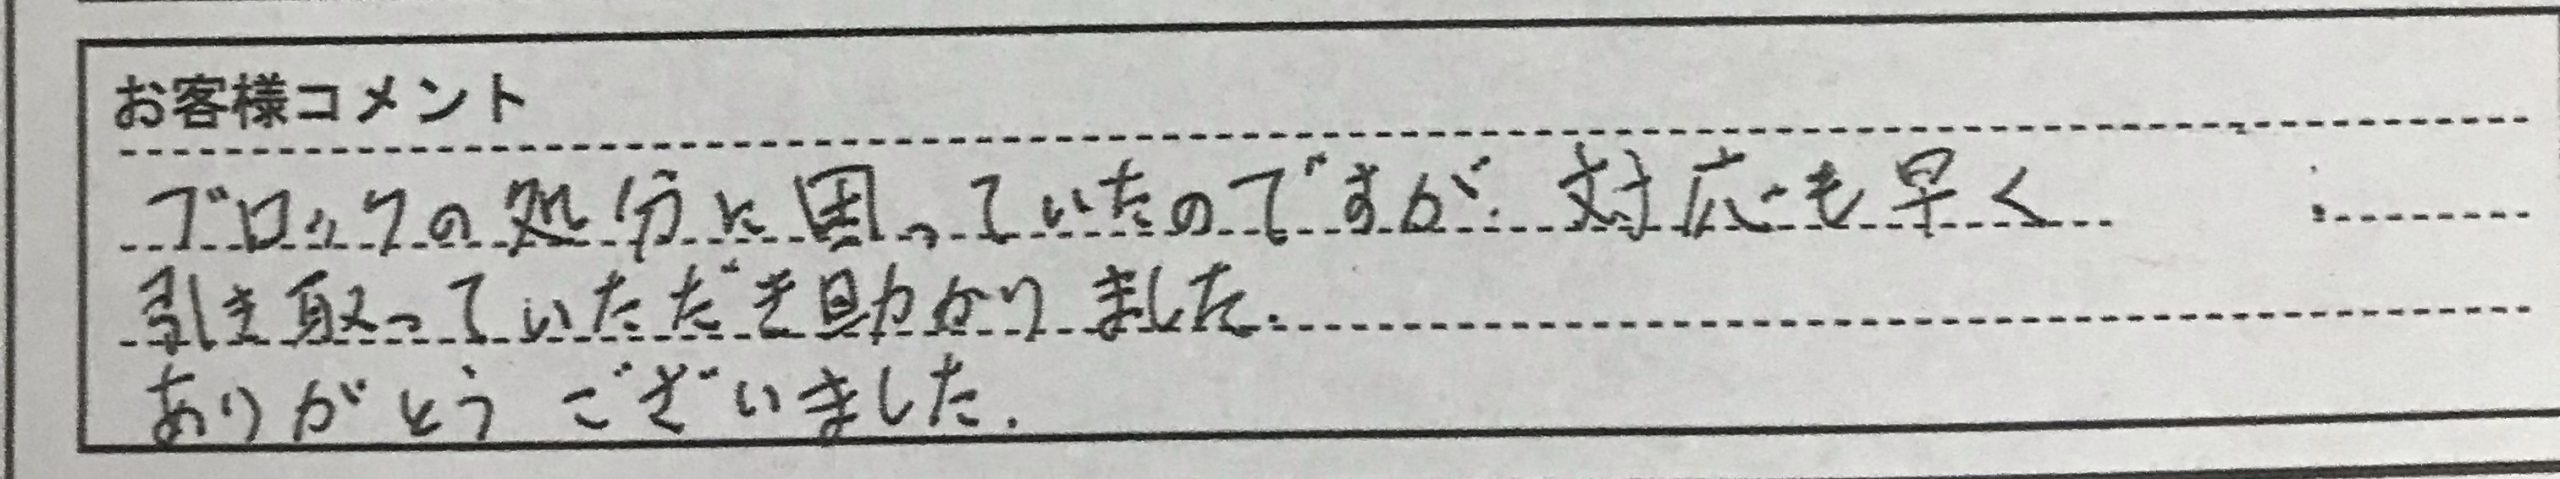 お客様コメント
ブロックの処分に困っていたのですが、対応も早く
引き取っていただき助かりました.
ありがとうございました.